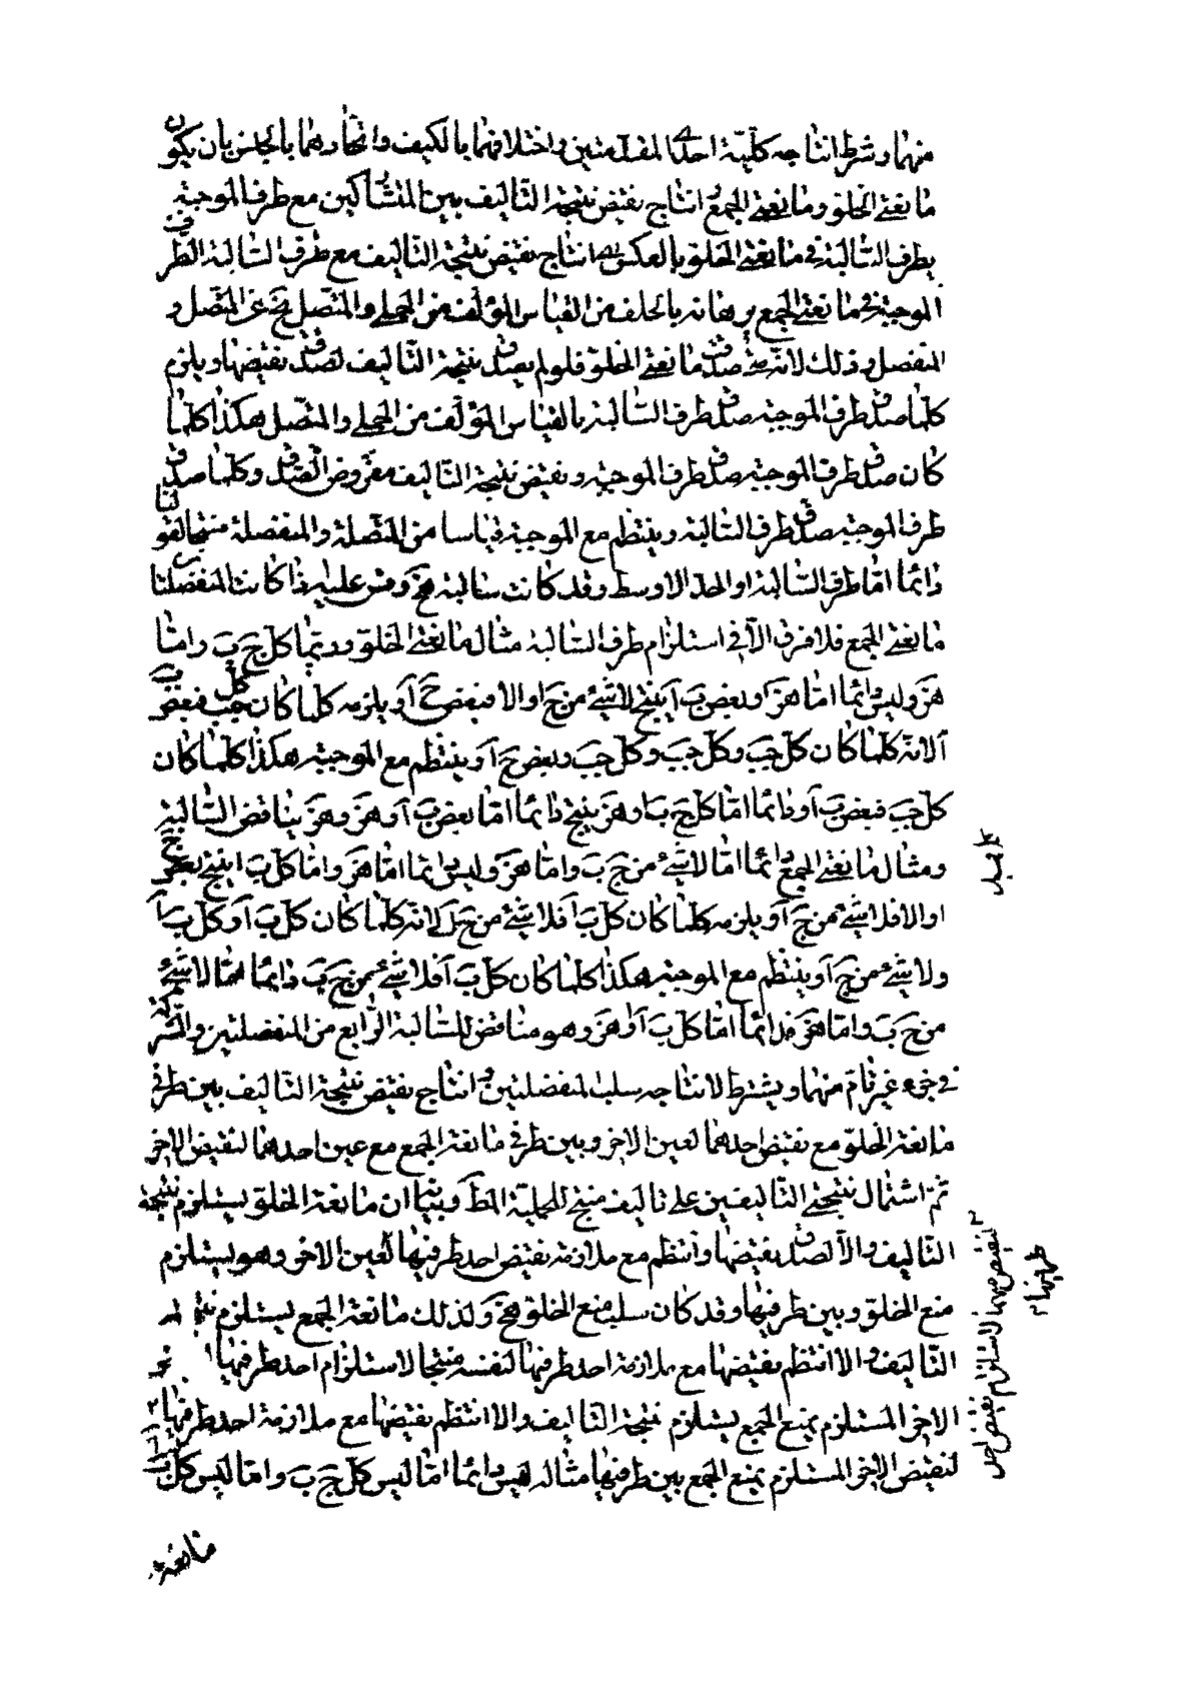 منهما وشرط انتاجه كليّة احدى المقدمتين واختلافهما بالكيف واتحادهما بالجنس بان يكون
مانعتي الخلو ومانعتي الجمع انتاج نقيض نتيجة التاليف بين المتشاركين مع طرف الموجبة
طرف السّالبة في مانعتي الخلو بالعكس انتاج نقيض نتيجة التاليف مع طرف السّالبة الطرف
الموجبة في مانعتي الجمع برهانه بالخلف من القياس المؤلف من الحملي والمتّصل مخ عن المتّصل و
المنفصل وذلك لانه متى صدق مانعتي الخلو فلو لم يصدق نتيجة التّاليف لصدق نقيضها ويلزم
كلّما صدق طرف الموجبة صدق طرف السّالبة بالقياس المؤلف من الحملي والمتّصل هكذا كلّما
كان صدق طرف الموجبة صدق طرف الموجبة ونقيض نتيجة التّاليف مفروض الصّدق وكلّما صدق
طرف الموجبة صدق طرف السّالبة وينتظم مع الموجبة قياسا من المتّصلة والمنفصلة منتجا لقولنا
دائما امّا طرف السّالبة او الحد الاوسط وقد كانت سالبة هف وقس عليه اذا كانت المنفصلتان
مانعتي الجمع فلا فرق الا في استلزام طرف السّالبة مثال مانعتي الخلو دائما كل ج ب وامّا
هز وليس دائما امّا هز او بعض ب آ ينتج لا شئ من ج ا والا فبعض ج آ ويلزمه كلما كان كل ج ب فبعض ب
آ لانه كلّما كان كل ج ب وكل ج ب وكل ج ب وبعض ج آ وينتظم مع الموجبة هكذا كلّما كان
كل ج ب فبعض ب آ ودائما امّا كل ج ب او هز ينتج دائما امّا بعض ب آ وهز وهز يناقض السّالبة
ومثال مانعتي الجمع دائما امّا لا شئ من ج ب وامّا هز وليس دائما امّا هز وامّا كل ب ا ينتج بعض ج
ا والا فلا شئ من ج آ ويلزمه كلما كان كل ب آ فلا شئ من ج ب لانه كلّما كان كل ب آ وكل ب آ
ولا شئ من ج آ وينتظم مع الموجبة هكذا كلما كان كل ب آ فلا شئ من ج ب ودائما امّا لا شئ
من ج ب وامّا هز فدائما امّا كل ب آ او هز وهو مناقض للسّالبة الرّابع من المنفصلتين والشركة
في جزء غير تام منهما ويشترط لانتاجه سلب المنفصلتين وانتاج نقيض نتيجة التّاليف بين طرفي
مانعة الخلو مع نقيض احدهما لعين الاخر وبين طرفي مانعة الجمع مع عين احدهما لنقيض الاخر
ثمّ اشتمال نتيجتي التّاليفين على تاليف منتج للحملية المط وبيّنا ان مانعة الخلو يستلزم نتيجة
التّاليف والا لصدق نقيضها وانتظم مع ملازمة نقيض احد طرفيها لعين الاخر وهو يستلزم
منع الخلو وبين طرفيها وقد كان سلب منع الخلو هف ولذلك مانعة الجمع يستلزم نتيجة
التّاليف والا انتظم نقيضها مع ملازمة احد طرفيها لنفسه منتجا لاستلزام احد طرفيها
الاخر المستلزم بمنع الجمع يستلزم نتيجة التّاليف والا انتظم نقيضها مع ملازمة احد طرفيها
لنقيض الاخر المستلزم بمنع الجمع بين طرفيها مثاله ليس دائما امّا ليس كل ج ب وامّا ليس كل
مانعة
لنقيض منهما لاستلزام نقيض احد
طرفيها